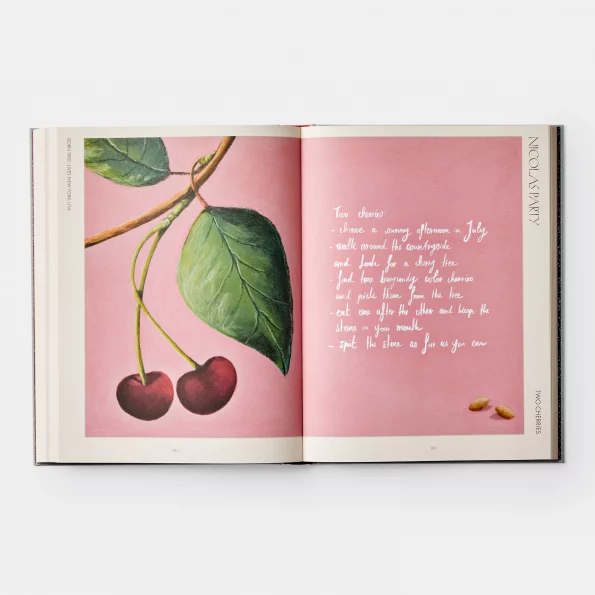 Two cherries:
- choose a sunny afternoon in July
- walk around the countryside
and look for a cherry tree
- find two burgundy color cherries
and pick them from the tree
- eat one after the other and keep the
stones in your mouth
- spit the stone as far as you can
NICOLAS PARTY
TWO CHERRIES